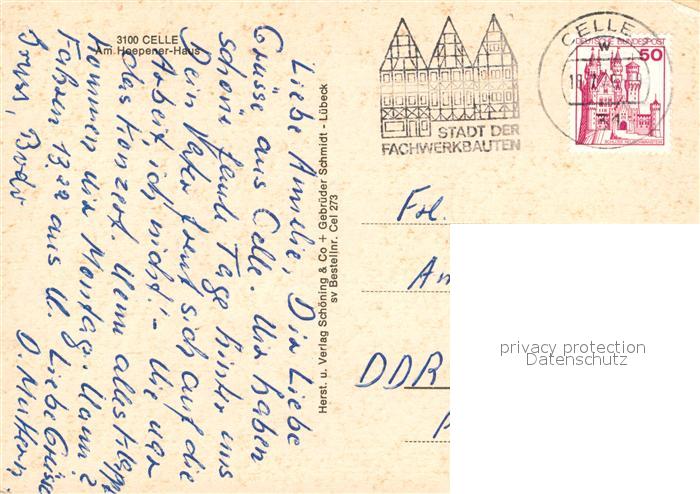 3100 CELLE
Am Heepener-Haus
Liebe Amelie, Dir Liebe
Grüsse aus Celle. Wir haben
schöne Tage hinter uns
Dein Vater freut sich auf die
Arbeit, ich nicht! - Wie war
das Konzert. Wenn alles klappt
kommen wir Montag. Wann?
Fahren 13,22 aus U. Liebe Grüsse
Gruss, D. Muttern
Herst. u. Verlag Schöning & Co + Gebrüder Schmidt - Lübeck
sv Bestellnr. Cel 273
STADT DER
FACHWERKBAUTEN
CELLE
DEUTSCHE BUNDESPOST
50
Frl.
Am
DDR
privacy protection
Datenschutz